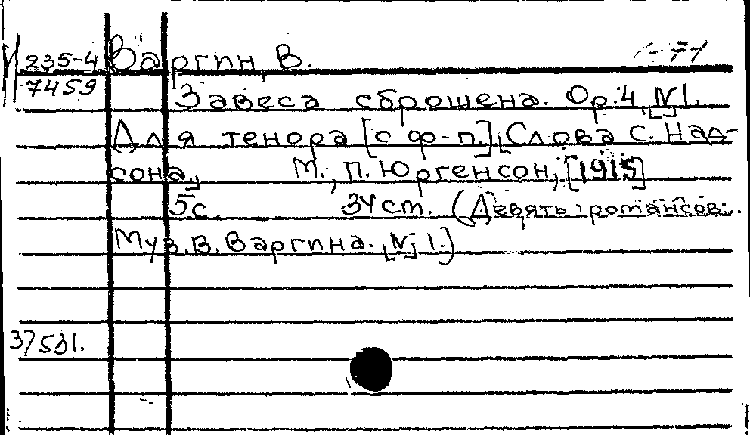 И 235-4 Варгин, В. 1-71
7459
Завеса сброшена. Ор. 4, [№] 1.
Для тенора [с ф-п.], [Слова С. Над-
сона.] М., П. Юргенсон, [1915]
5 с. 34 cm. (Девять романсов.
Муз. В. Варгина. [№] 1.)
37501.